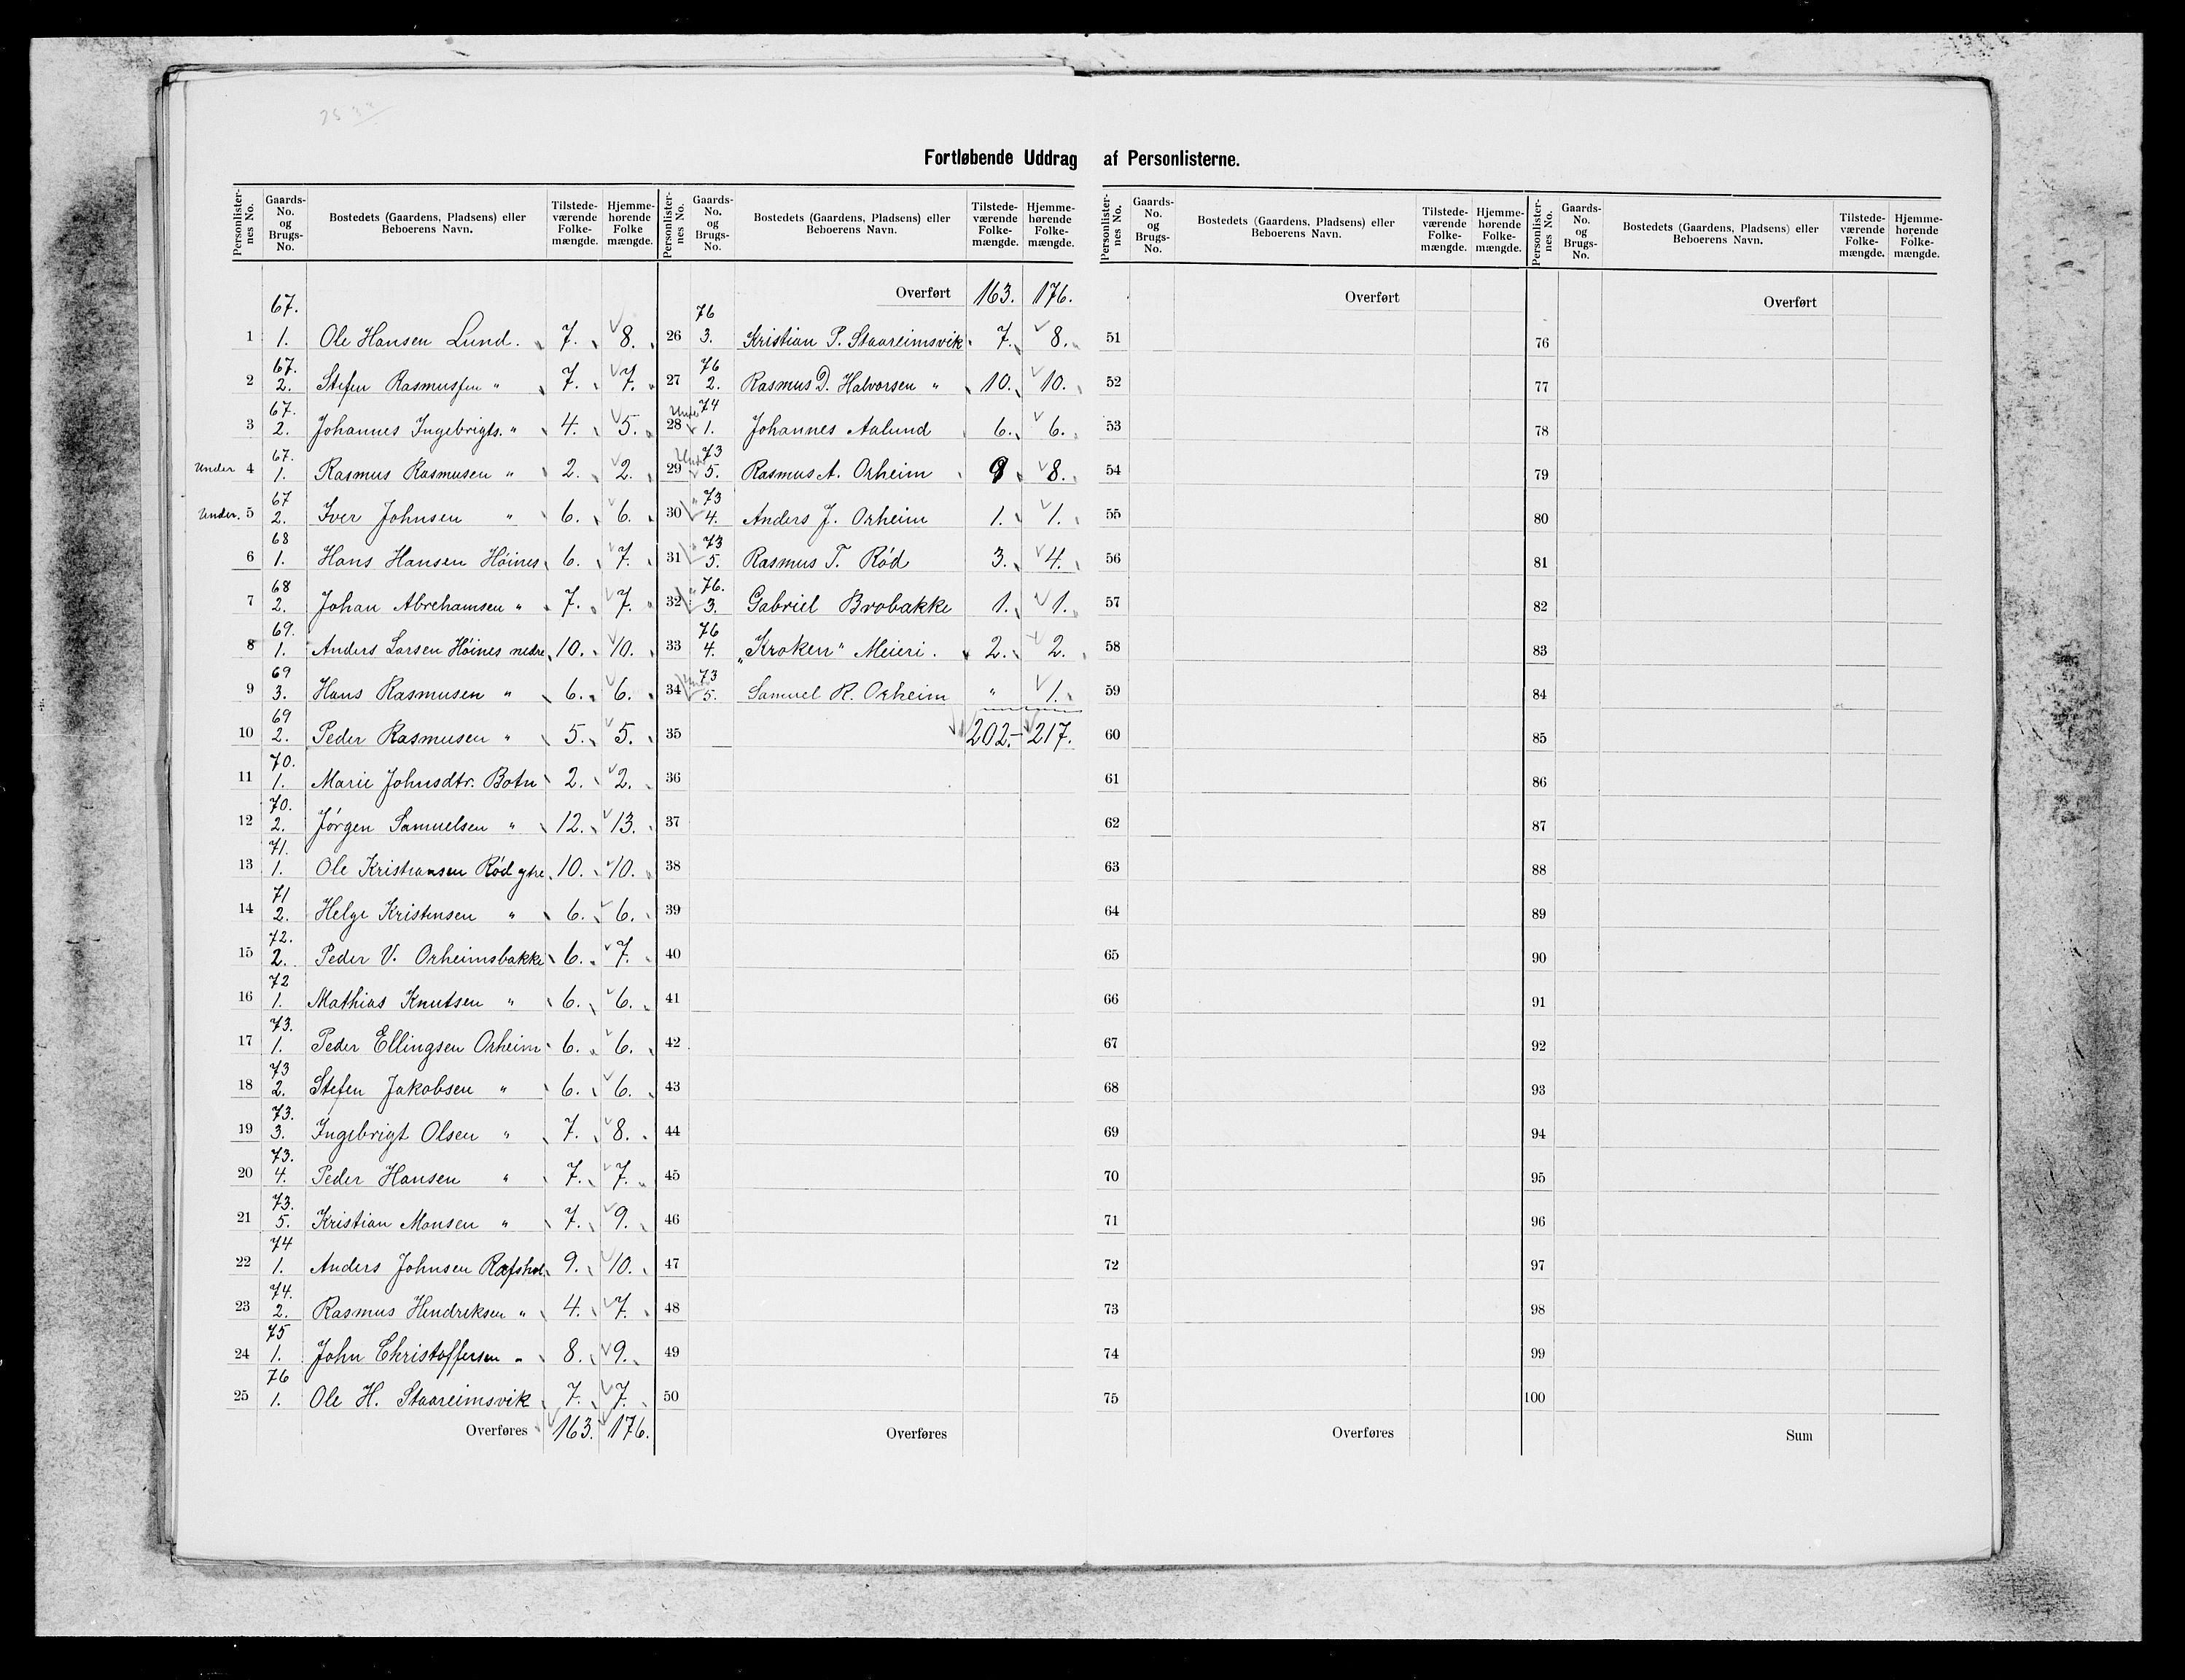 Fortløbende Uddrag af Personlisterne.
Personlisternes No. Gaards-No. og Brugs-No. Bostedets (Gaardens, Pladsens) eller Beboerens Navn. Tilstedeværende Folkemængde. Hjemmehørende Folkemængde.
1 67. 1. Ole Hansen Lund. 7. 8.
2 67. 2. Stefen Rasmussen " 7. 7.
3 67. 2. Johannes Ingebrigts. " 4. 5.
Under 4 67. 1. Rasmus Rasmusen " 2. 2.
Under. 5 67 2. Iver Johnsen " 6. 6.
6 68 1. Hans Hansen Höines 6. 7.
7 68 2. Johan Abrehamsen " 7. 7.
8 69. 1. Anders Larsen Höines nedre 10. 10.
9 69 3. Hans Rasmusen " 6. 6.
10 69 2. Peder Rasmusen " 5. 5.
11 70. 1. Marie Johnsdtr. Botn 2. 2.
12 70. 2. Jörgen Samuelsen " 12. 13.
13 71. 1. Ole Kristiansen Röd ytre 10. 10.
14 71 2. Helge Kristensen " 6. 6.
15 72. 2. Peder V. Orheimsbakke 6. 7.
16 72 1. Mathias Knutsen " 6. 6.
17 73. 1. Peder Ellingsen Orheim 6. 6.
18 73 2. Stefen Jakobsen " 6. 6.
19 73. 3. Ingebrigt Olsen " 7. 8.
20 73. 4. Peder Hansen " 7. 7.
21 73. 5. Kristian Monsen " 7. 9.
22 74 1. Anders Johnsen 9. 10.
23 74. 2. Rasmus Hendreksen " 4. 7.
24 75 1. John Christoffersen " 8. 9.
25 76 1. Ole H. Staareimsvik 7. 7.
Overføres 163. 176.
Personlisternes No. Gaards-No. og Brugs-No. Bostedets (Gaardens, Pladsens) eller Beboerens Navn. Tilstedeværende Folkemængde. Hjemmehørende Folkemængde.
Overført 163. 176.
26 76 3. Kristian P. Staareimsvik 7. 8.
27 76 2. Rasmus D. Halvorsen " 10. 10.
28 Under 74 1. Johannes Aalund 6. 6.
29 Under 73 5. Rasmus A. Orheim 9 8.
30 " 73 4. Anders J. Orheim 1. 1.
31 " 73 5. Rasmus T. Röd 3. 4.
32 " 76. 3. Gabriel Brobakke 1. 1.
33 76 4. "Kroken" Meieri. 2. 2.
34 Under 73 5. Samuel R. Orheim " 1.
35 202.- 217.
36
37
38
39
40
41
42
43
44
45
46
47
48
49
50
Overføres
Personlisternes No. Gaards-No. og Brugs-No. Bostedets (Gaardens, Pladsens) eller Beboerens Navn. Tilstedeværende Folkemængde. Hjemmehørende Folkemængde.
Overført
51
52
53
54
55
56
57
58
59
60
61
62
63
64
65
66
67
68
69
70
71
72
73
74
75
Overføres
Personlisternes No. Gaards-No. og Brugs-No. Bostedets (Gaardens, Pladsens) eller Beboerens Navn. Tilstedeværende Folkemængde. Hjemmehørende Folkemængde.
Overført
76
77
78
79
80
81
82
83
84
85
86
87
88
89
90
91
92
93
94
95
96
97
98
99
100
Sum